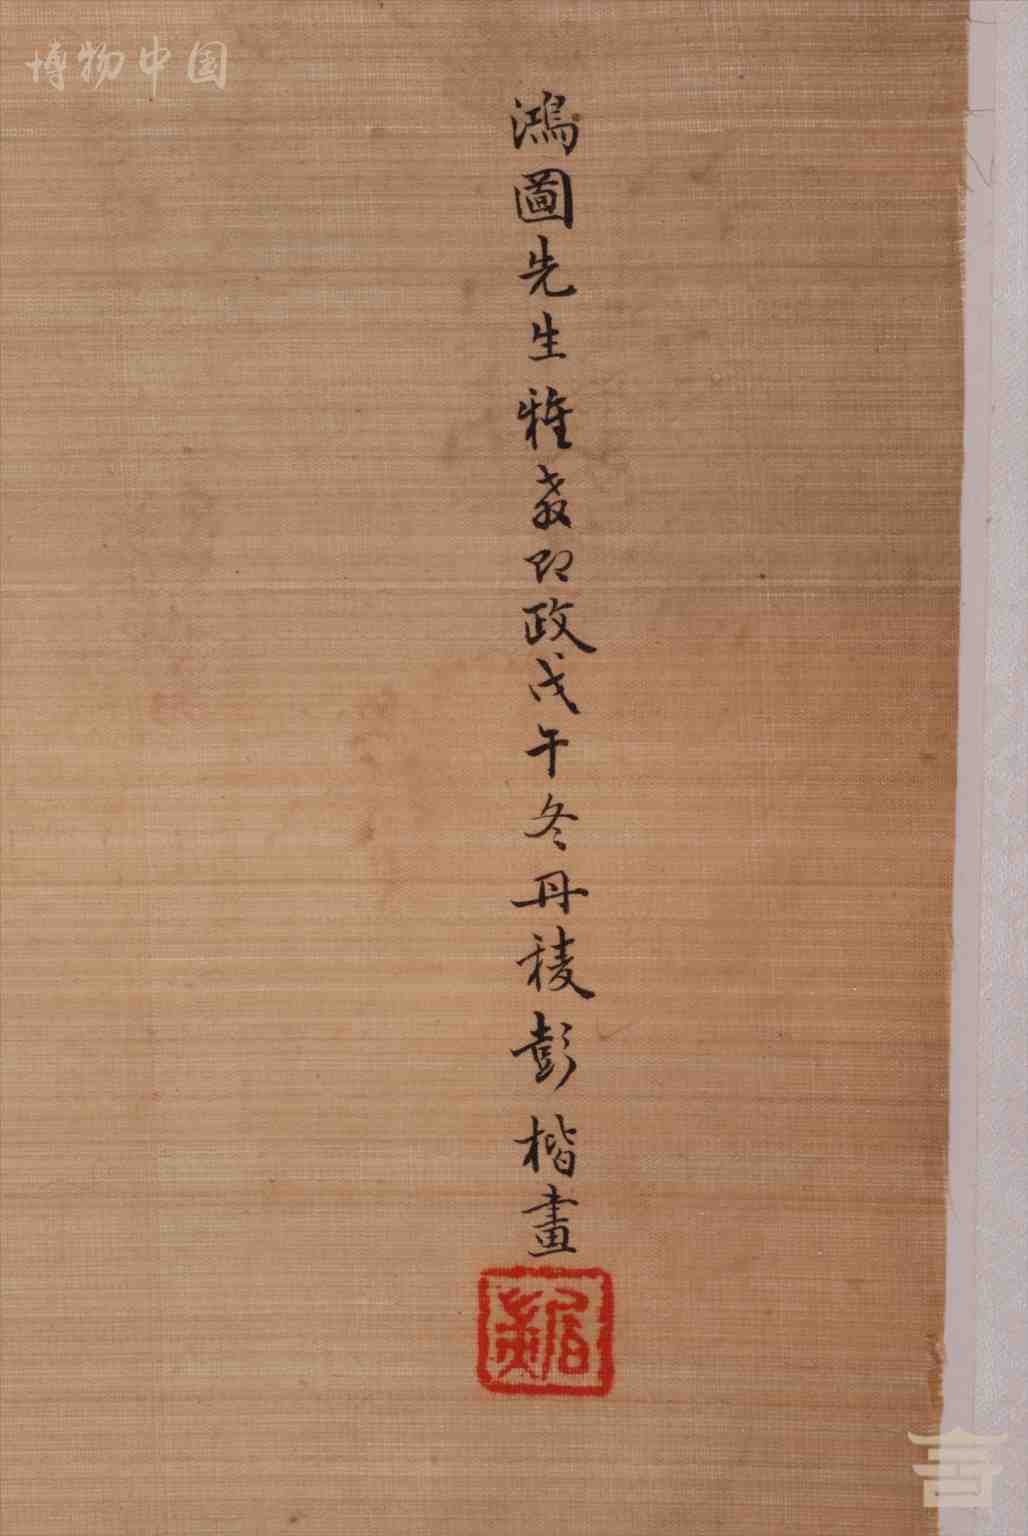 博物中国
鴻圖先生雅教即政戊午冬丹稜彭楷畫